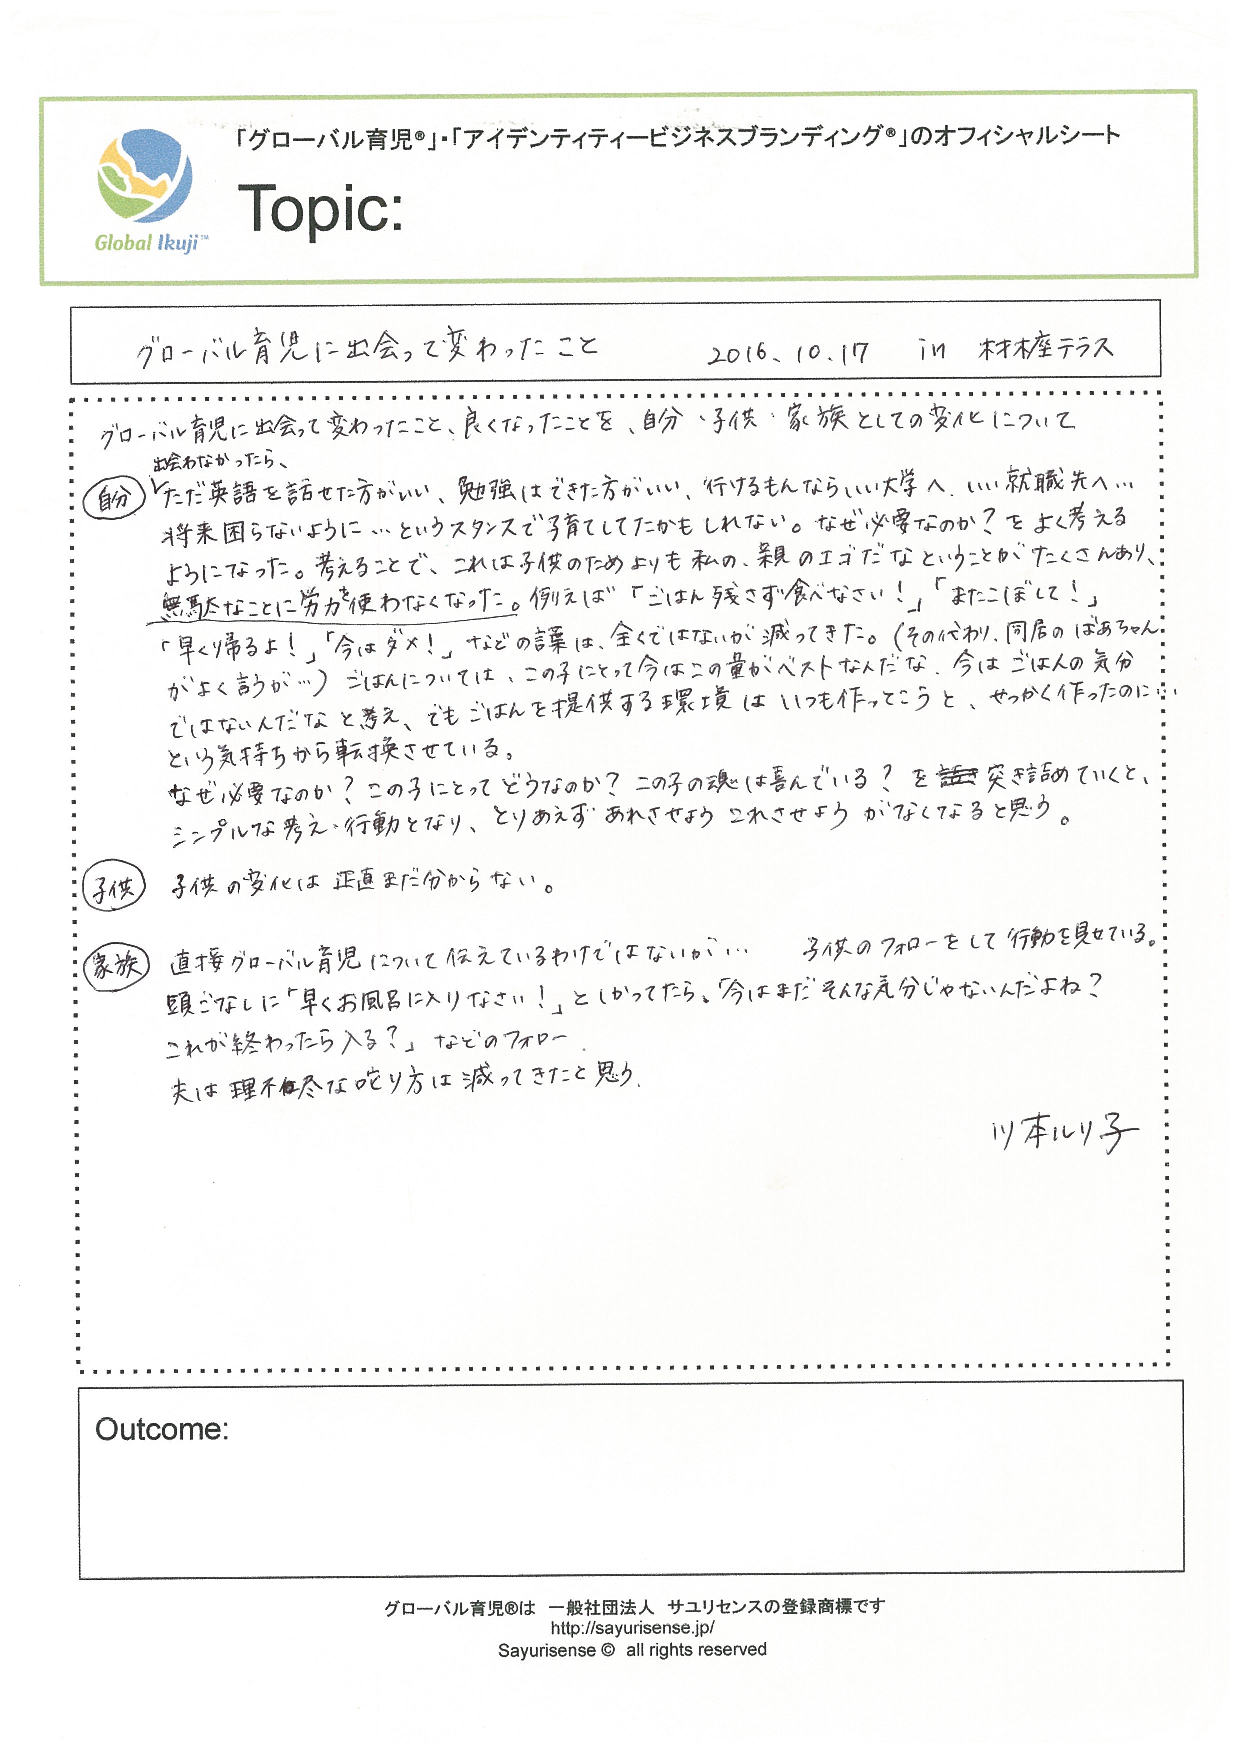 「グローバル育児®」・「アイデンティティービジネスブランディング®」のオフィシャルシート
Topic:
Global Ikuji™
グローバル育児に出会って変わったこと 2016.10.17 in 材木座テラス
グローバル育児に出会って変わったこと、良くなったことを、自分・子供・家族としての変化について
出会わなかったら、
自分 ただ英語を話せた方がいい、勉強はできた方がいい、行けるもんならいい大学へ、いい就職先へ…
将来困らないように…というスタンスで子育てしてたかもしれない。なぜ必要なのか?をよく考える
ようになった。考えることで、これは子供のためよりも私の、親のエゴだなということがたくさんあり、
無駄なことに労力を使わなくなった。例えば「ごはん残さず食べなさい!」「またこぼして!」
「早く帰るよ!」「今はダメ!」などの言葉は、全くではないが減ってきた。(その代わり、同居のばあちゃん
がよく言うが…)ごはんについては、この子にとって今はこの量がベストなんだな、今はごはんの気分
ではないんだなと考え、でもごはんを提供する環境はいつも作ってこうと、せっかく作ったのに…
という気持ちから転換させている。
なぜ必要なのか?この子にとってどうなのか?この子の魂は喜んでいる?を突き詰めていくと、
シンプルな考え・行動となり、とりあえずあれさせようこれさせようがなくなると思う。
子供 子供の変化は正直まだ分からない。
家族 直接グローバル育児について伝えているわけではないが… 子供のフォローをして行動を見せている。
頭ごなしに「早くお風呂に入りなさい!」としかってたら、「今はまだそんな気分じゃないんだよね?
これが終わったら入る?」などのフォロー.
夫は理不尽な叱り方は減ってきたと思う.
川本ルリ子
Outcome:
グローバル育児®は 一般社団法人 サユリセンスの登録商標です
http://sayurisense.jp/
Sayurisense © all rights reserved